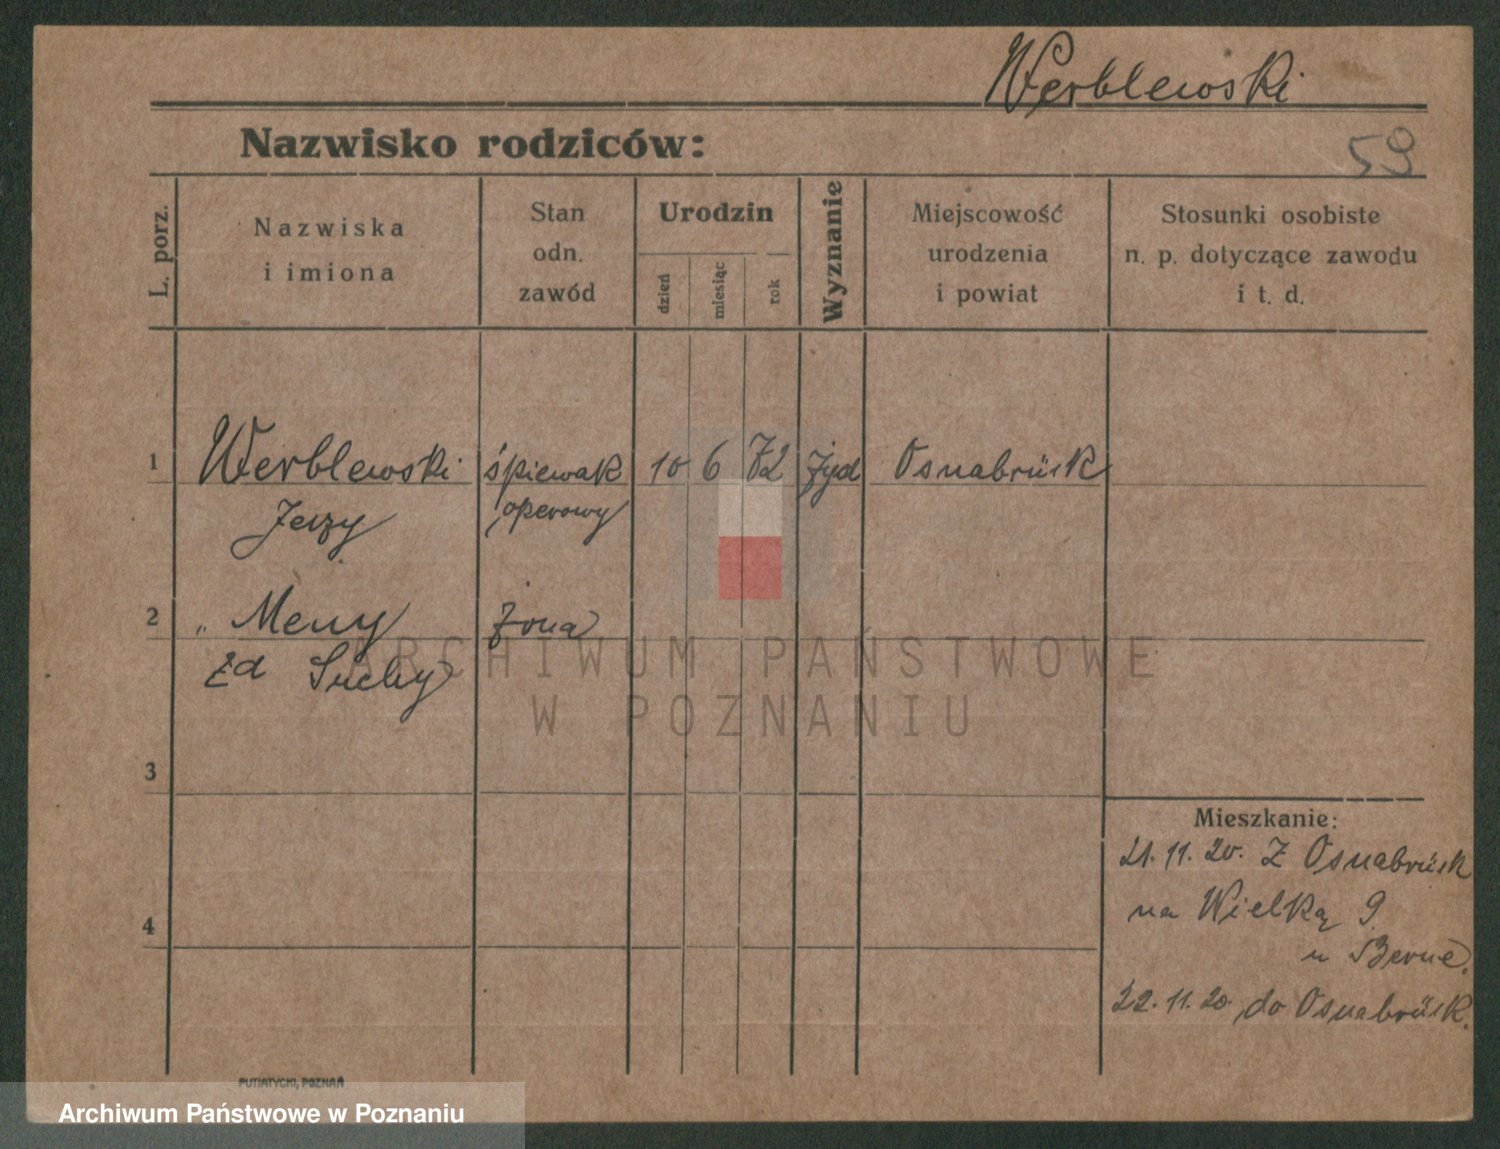 Werblewski
Nazwisko rodziców:
59
L. porz.
Nazwiska
i imiona
Stan
odn.
zawód
Urodzin
dzień
miesiąc
rok
Wyznanie
Miejscowość
urodzenia
i powiat
Stosunki osobiste
n. p. dotyczące zawodu
i t. d.
1
Werblewski
Jerzy
śpiewak
operowy
10 6 72
żyd
Osnabrück
2
" Meny
żona
zd Suchy
ARCHIWUM PAŃSTWOWE
W POZNANIU
3
4
Mieszkanie:
21. 11. 20. Z Osnabrück
na Wielką 9
u Berne.
22. 11. 20. do Osnabrück.
PUTIATYCKI, POZNAŃ
Archiwum Państwowe w Poznaniu